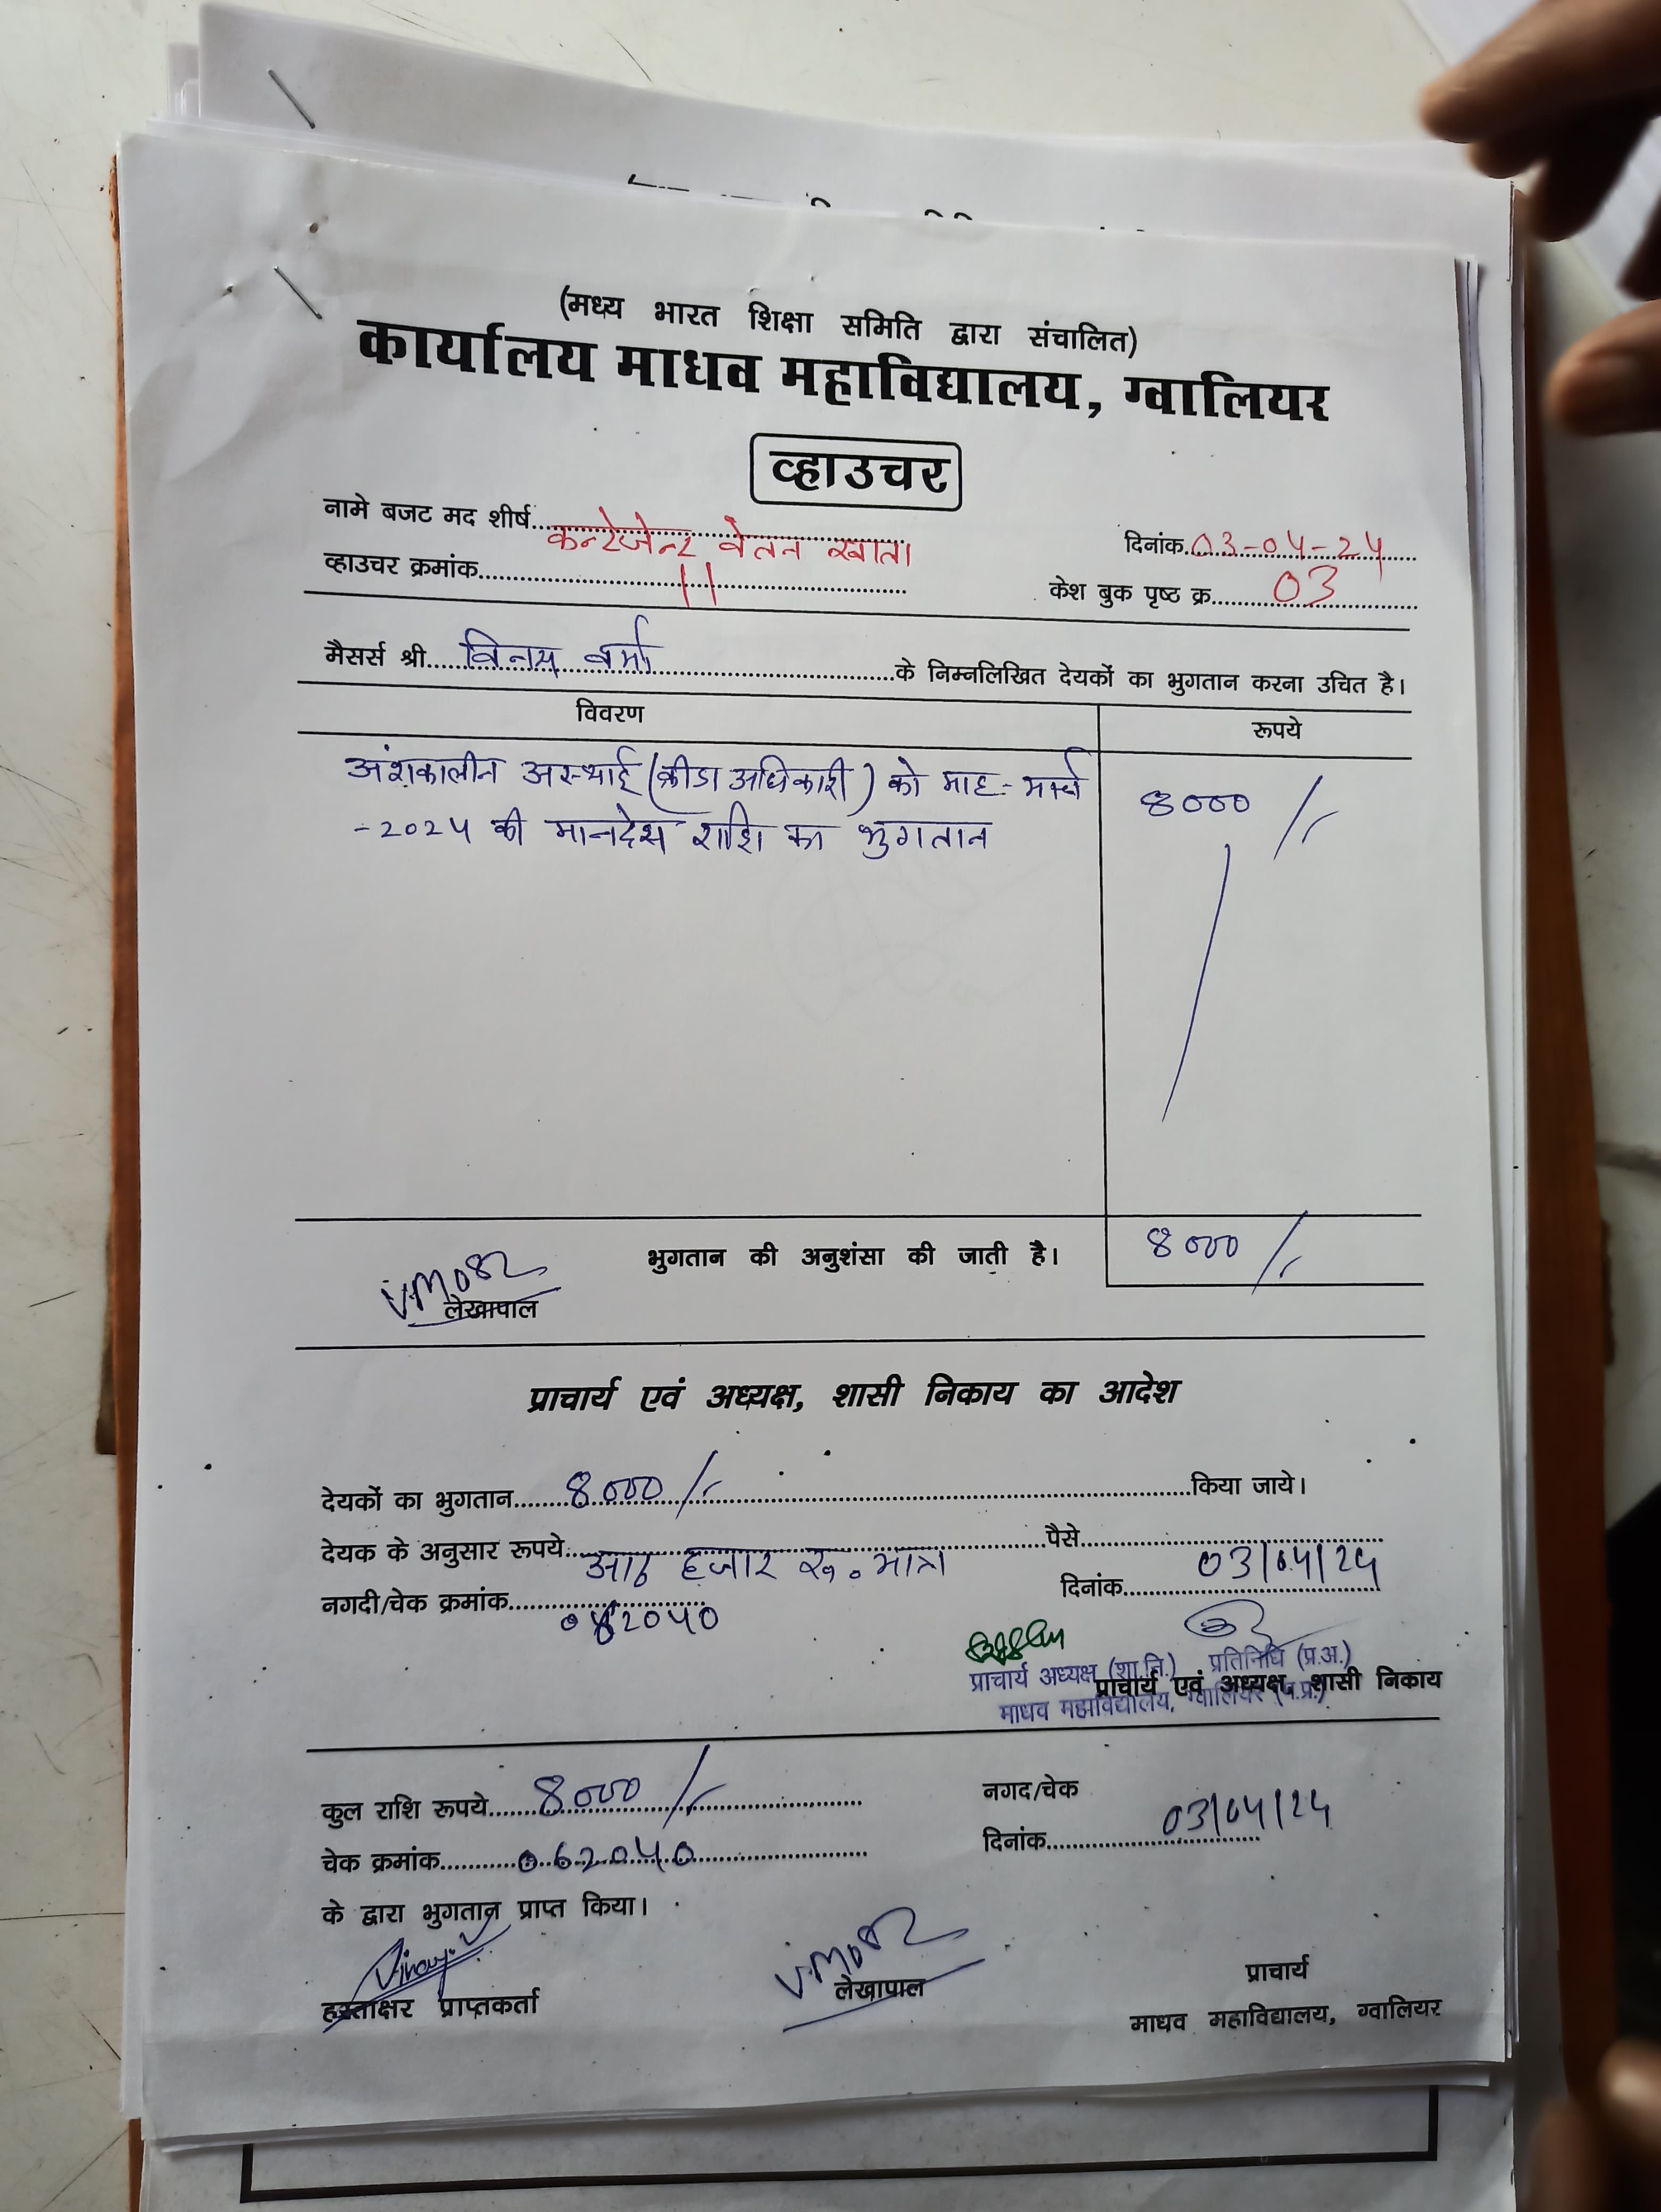 (मध्य भारत शिक्षा समिति द्वारा संचालित)
कार्यालय माधव महाविद्यालय, ग्वालियर
व्हाउचर
नामे बजट मद शीर्ष कन्टेजेन्ट वेतन खाता दिनांक 03-04-24
व्हाउचर क्रमांक 11 केश बुक पृष्ठ क्र. 03
मैसर्स श्री विनय वर्मा के निम्नलिखित देयकों का भुगतान करना उचित है।
विवरण रूपये
अंशकालीन अस्थाई (क्रीडा अधिकारी) को माह- मार्च 8000/-
-2024 की मानदेय राशि का भुगतान
भुगतान की अनुशंसा की जाती है। 8000/-
लेखापाल
प्राचार्य एवं अध्यक्ष, शासी निकाय का आदेश
देयकों का भुगतान 8000/- किया जाये।
देयक के अनुसार रूपये आठ हजार रू. मात्र पैसे
नगदी/चेक क्रमांक 062040 दिनांक 03/04/24
प्राचार्य अध्यक्ष (शा.नि.) प्रतिनिधि (प्र.अ.)
प्राचार्य एवं अध्यक्ष, शासी निकाय
माधव महाविद्यालय, ग्वालियर (म.प्र.)
कुल राशि रूपये 8000/- नगद/चेक
चेक क्रमांक 062040 दिनांक 03/04/24
के द्वारा भुगतान प्राप्त किया।
Vinay
हस्ताक्षर प्राप्तकर्ता लेखापाल प्राचार्य
माधव महाविद्यालय, ग्वालियर